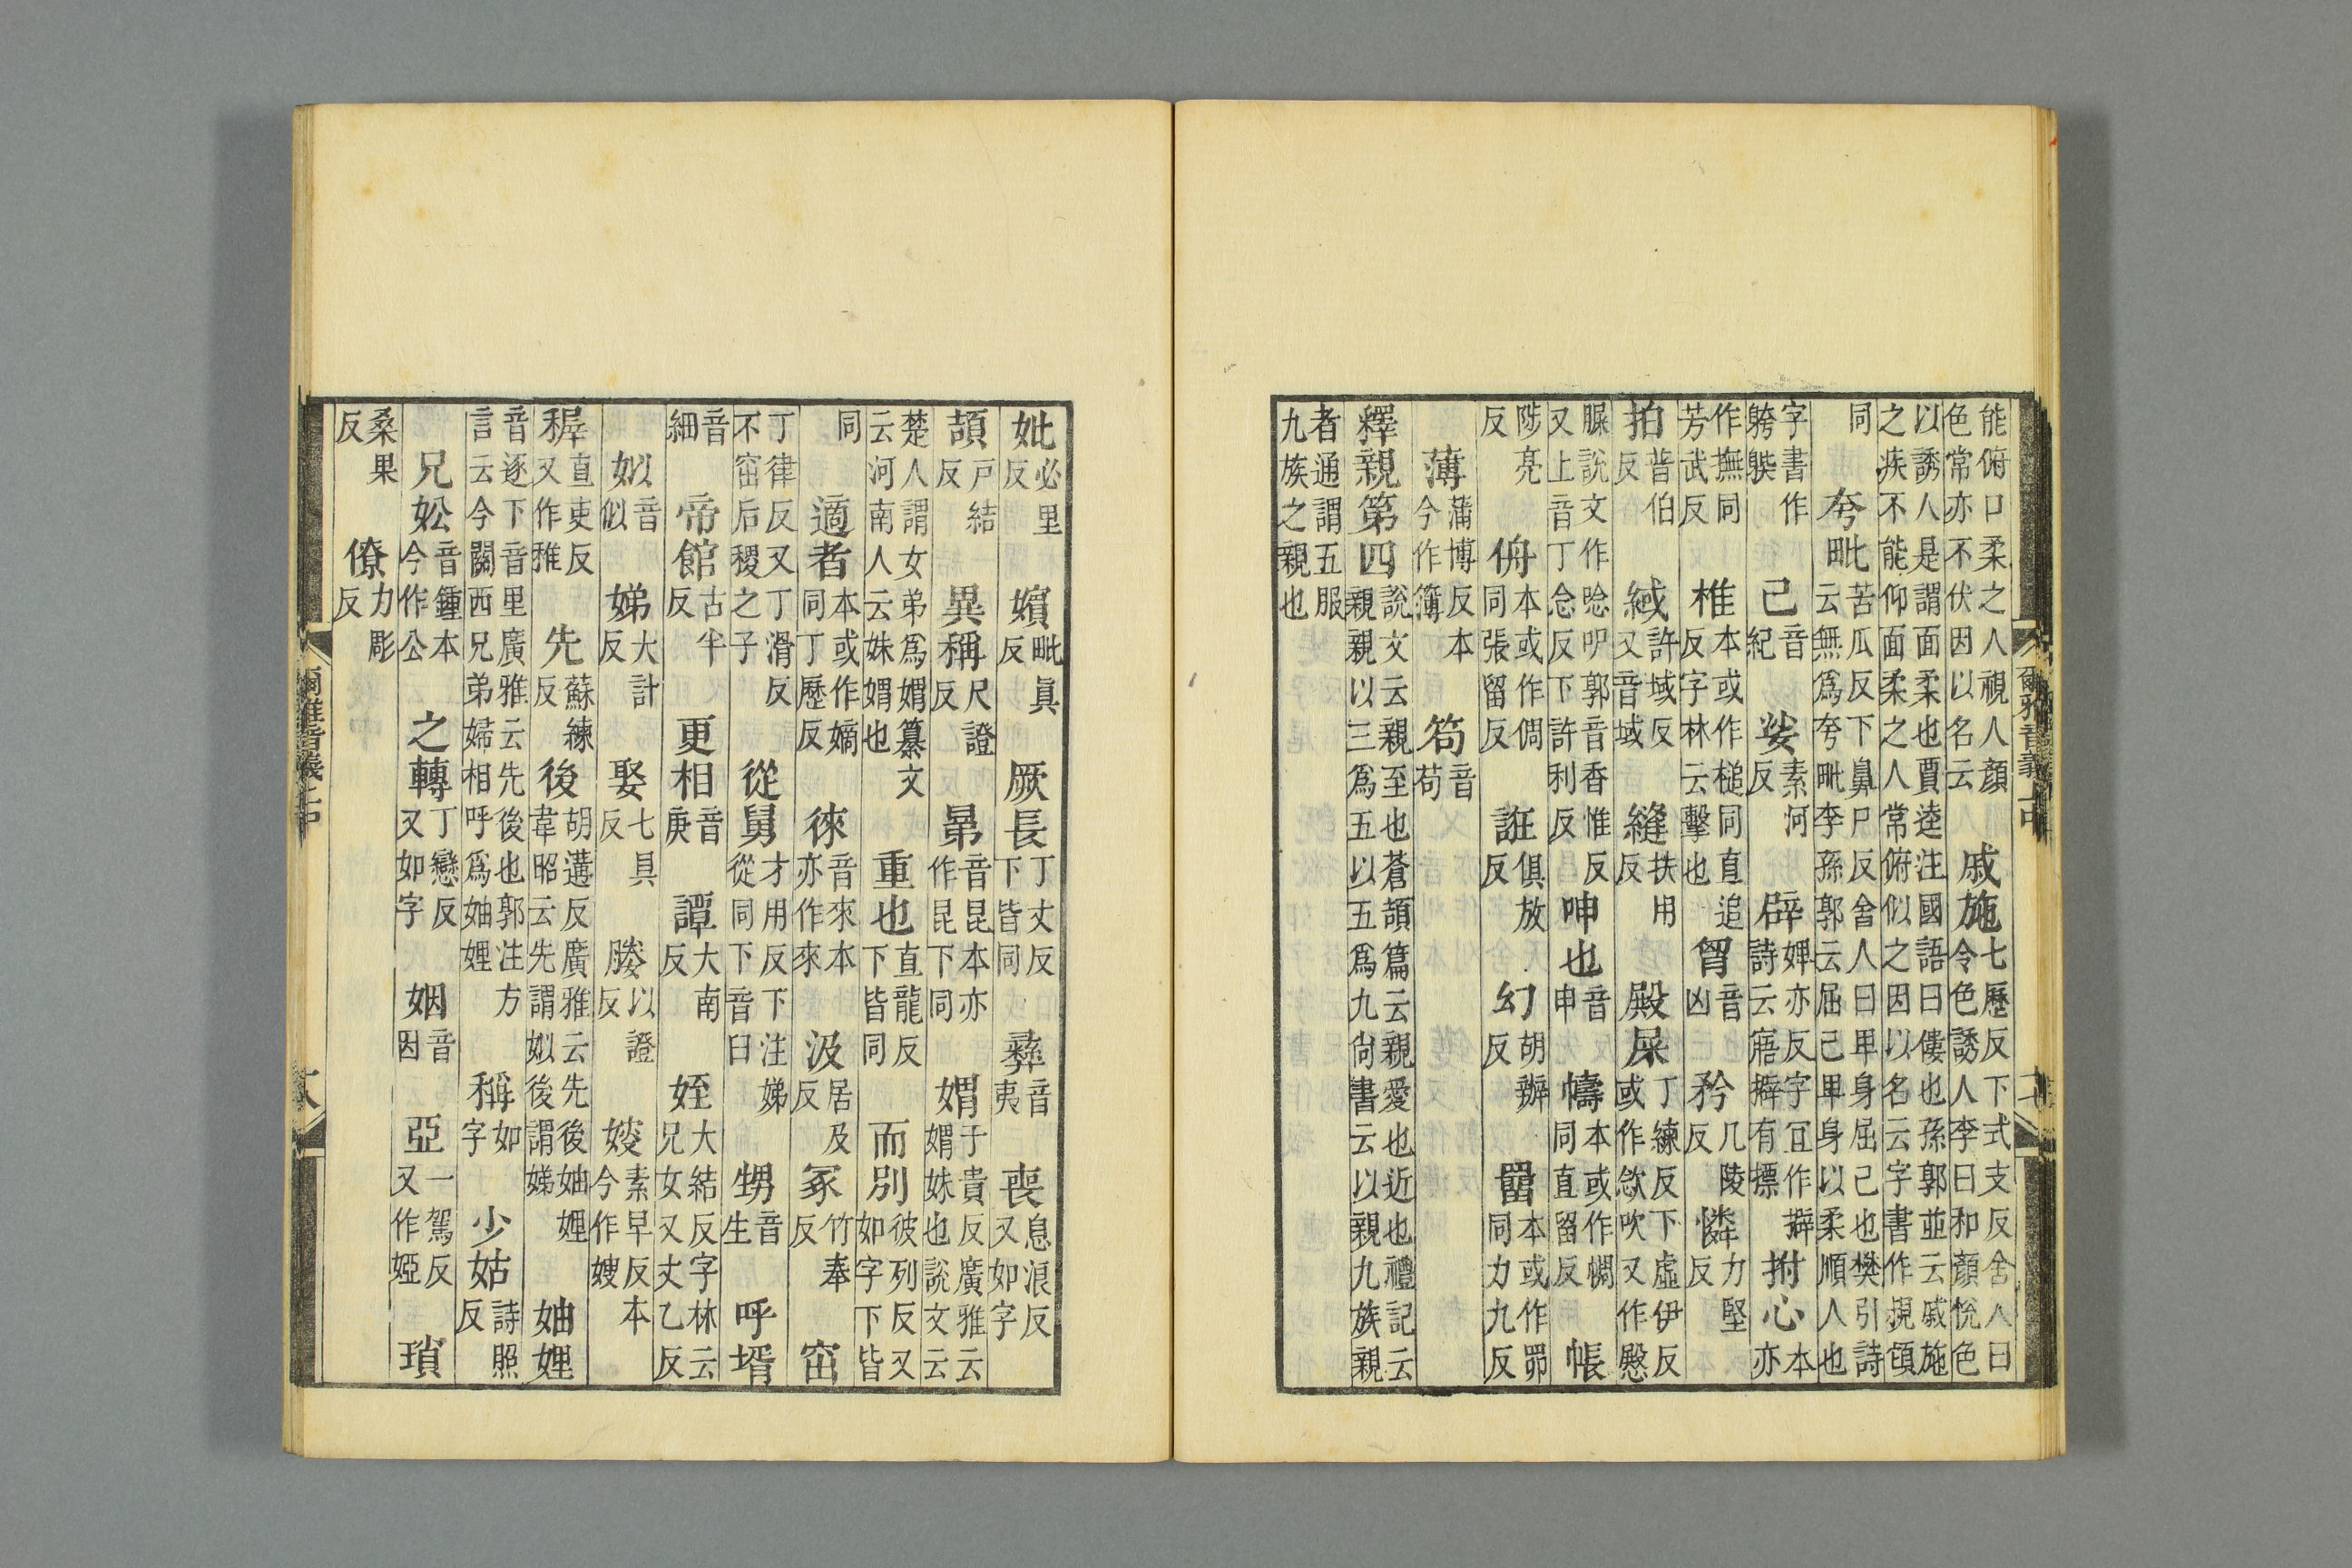 能俯口柔之人視人顏
色常亦不伏因以名云
戚施
七歷反下式支反舍人曰
令色誘人李曰和顏悅色
以誘人是謂面柔也賈逵注國語曰僂也孫郭並云戚施
之疾不能仰面柔之人常俯似之因以名云字書作規䫌
同
夸毗
苦瓜反下鼻尸反舍人曰卑身屈己也樊引詩
云無爲夸毗李孫郭云屈己卑身以柔順人也
字書作
骻䠹
己
音
紀
娑
素河
反
辟
婢亦反字宜作擗
詩云寤擗有摽
拊心
本
亦
作撫同
芳武反
椎
本或作槌同直追
反字林云擊也
胷
音
凶
矜
几陵
反
憐
力堅
反
拍
普伯
反
緎
許域反
又音域
縫
扶用
反
殿屎
丁練反下虛伊反
或作欨吹又作慇
脲說文作唸吚郭音香惟反
又上音丁念反下許利反
呻也
音
申
幬
本或作幮
同直留反
帳
陟亮
反
侜
本或作倜
同張留反
誑
俱放
反
幻
胡辦
反
罶
本或作罶
同力九反
薄
蒲博反本
今作簿
笱
音
苟
釋親第四
說文云親至也蒼頡篇云親愛也近也禮記云
親親以三爲五以五爲九尙書云以親九族親
者通謂五服
九族之親也
妣
必里
反
嬪
毗眞
反
厥長
丁丈反
下皆同
彝
音
夷
喪
息浪反
又如字
頡
戶結
反
異稱
尺證
反
晜
音昆本亦
作昆下同
媦
于貴反廣雅云
媦妹也說文云
楚人謂女弟爲媦纂文
云河南人云妹媦也
重也
直龍反
下皆同
而別
彼列反又
如字下皆
同
適者
本或作嫡
同丁歷反
徠
音來本
亦作來
汲
居及
反
冢
竹奉
反
窋
丁律反又丁滑反
不窋后稷之子
從舅
才用反下注
從同下音臼
甥
音
生
呼壻
音
細
帝館
古半
反
更相
音
庚
譚
大南
反
姪
大結反字林云
兄女又丈乙反
姒
音
似
娣
大計
反
娶
七具
反
媵
以證
反
㛐
素早反本
今作嫂
穉
直吏反
又作稚
先
蘇練
反
後
胡遘反廣雅云先後妯娌
韋昭云先謂姒後謂娣
妯娌
音逐下音里廣雅云先後也郭注方
言云今關西兄弟婦相呼爲妯娌
稱
如
字
少姑
詩照
反
兄妐
音鍾本
今作公
之轉
丁戀反
又如字
姻
音
因
亞
一駕反
又作婭
瑣
桑果
反
僚
力彫
反
爾雅音義上中